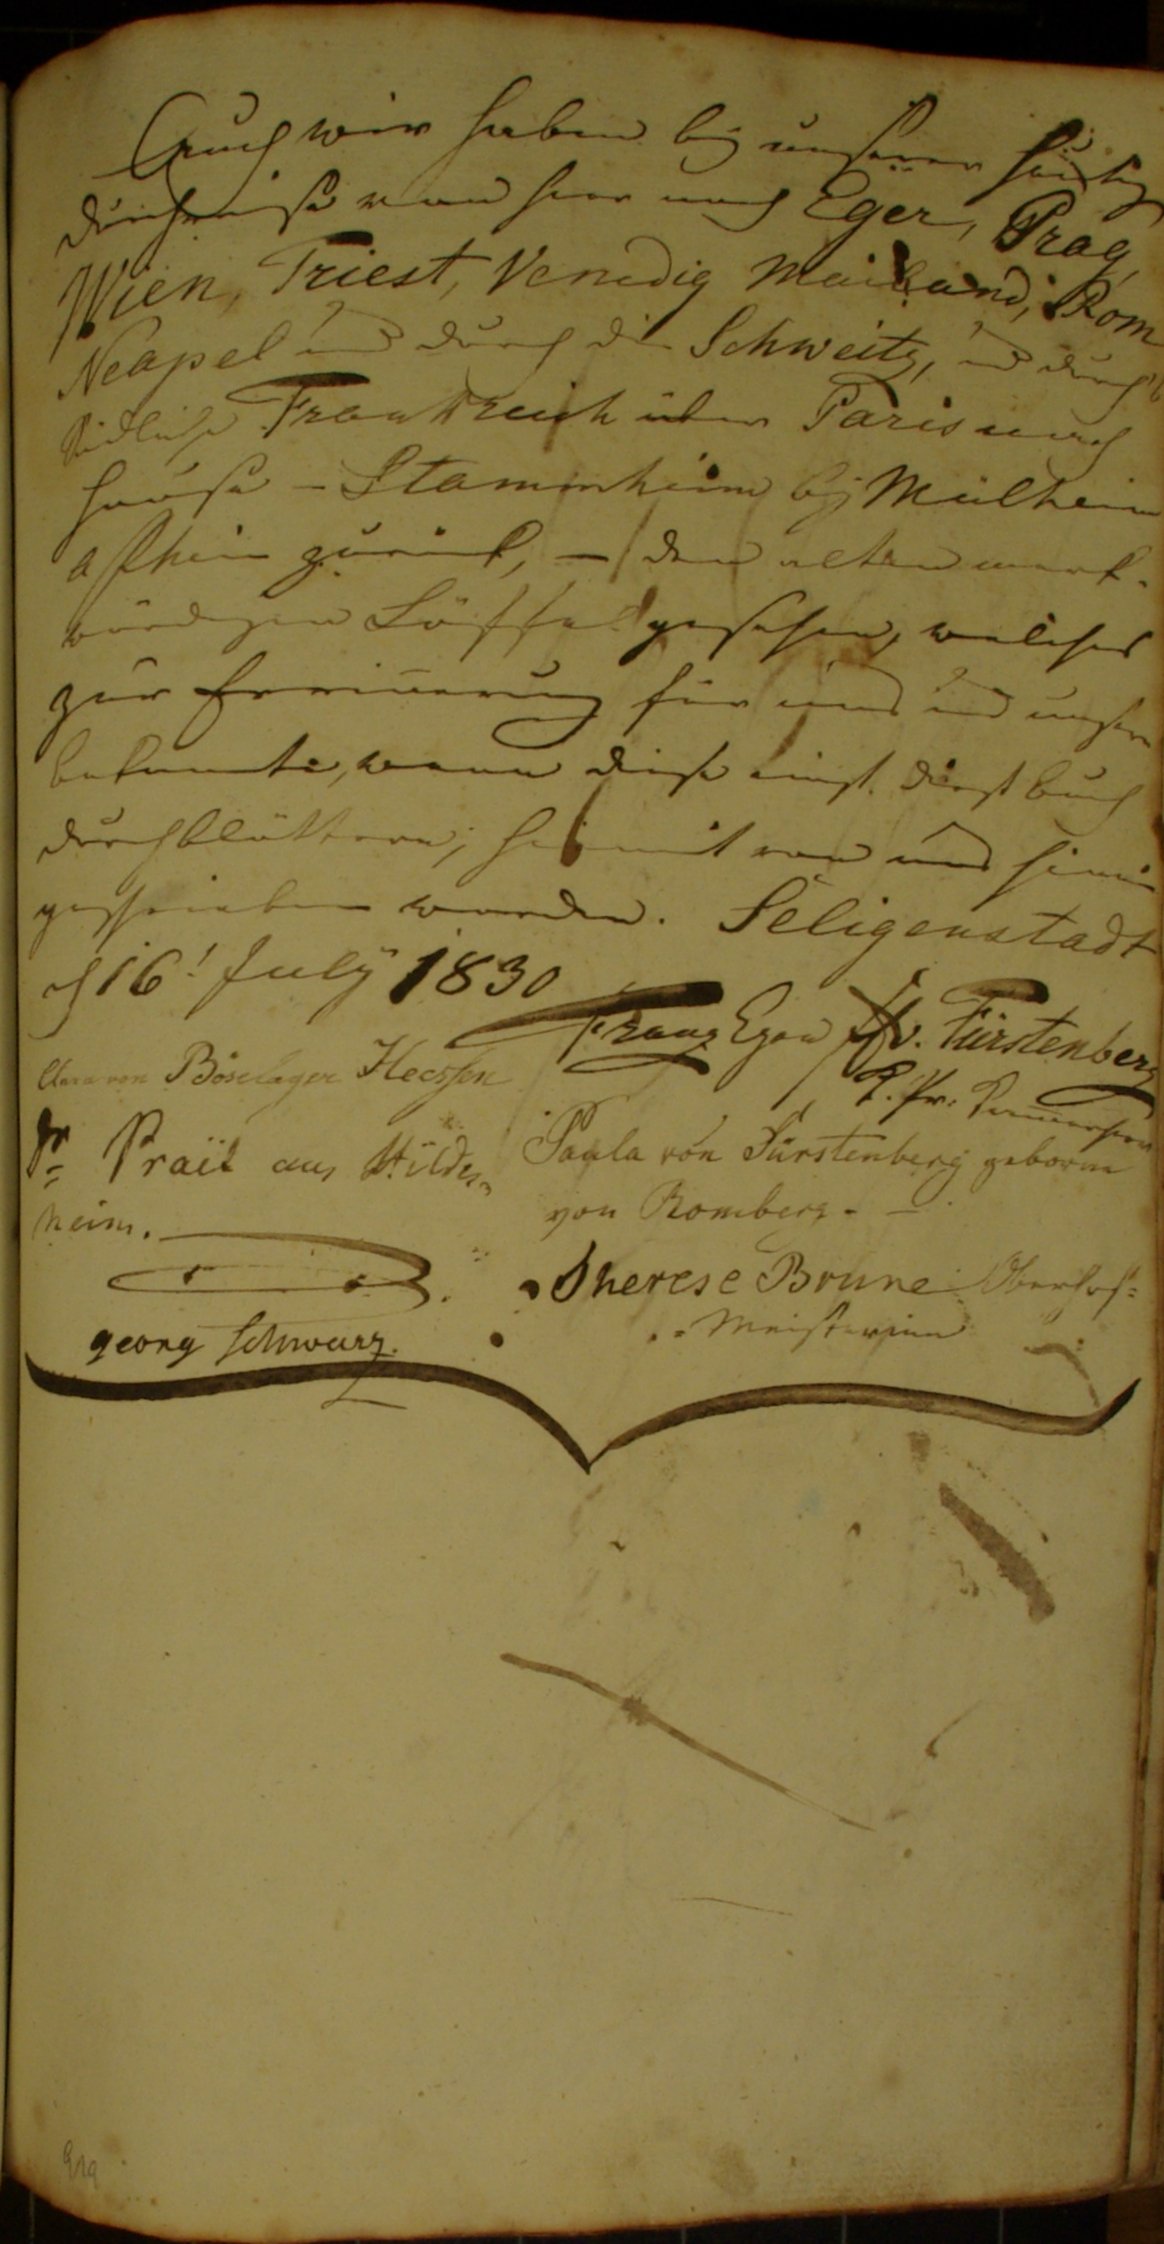 Auch wir haben bej unserer heutig
Durchreise von hier nach Eger, Prag,
Wien, Triest, Venedig Mailand, Rom
Neapel und durch die Schweitz, und durch's
südliche Frankreich über Paris nach
hause – Stammheim bej Mülheim
a Rhein zurück, – den alten merk-
würdigen Löffel gesehen, welches
zur Erinnerung für uns und unsere
bekannte, wenn diese einst dieses buch
durchblättern, hiemit von uns hinein
geschrieben worden. Seligenstadt
d 16t July 1830
Franz Egon v. Fürstenberg
Clara von Böselager Heessen
Dr Prail aus Hildes-
heim.
Paula von Fürstenberg geborne
von Romberg. –
Therese Brune Oberhof=
Meisterinn
georg Schwarz.